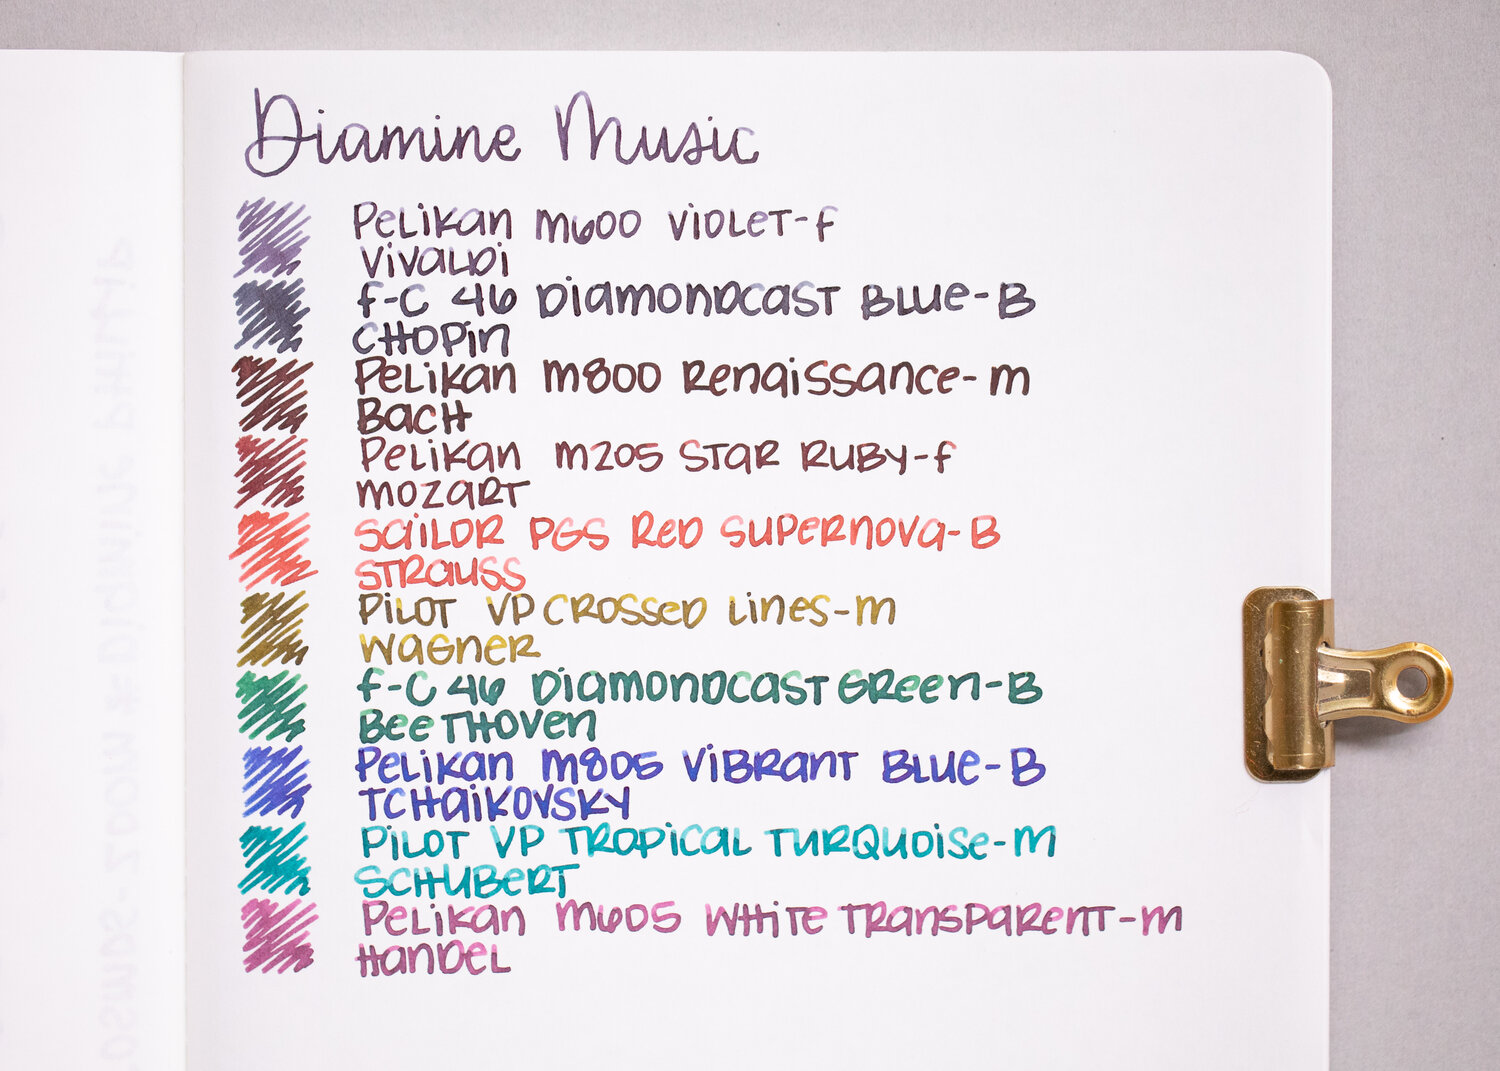 Diamine Music
Pelikan m600 Violet-f
Vivaldi
f-C 46 Diamondcast Blue-B
Chopin
Pelikan m800 Renaissance-m
Bach
Pelikan m205 Star Ruby-f
Mozart
Sailor PGS Red Supernova-B
Strauss
Pilot VP Crossed Lines-m
Wagner
f-C 46 Diamondcast Green-B
Beethoven
Pelikan m805 Vibrant Blue-B
Tchaikovsky
Pilot VP Tropical Turquoise-m
Schubert
Pelikan m605 White Transparent-m
Handel